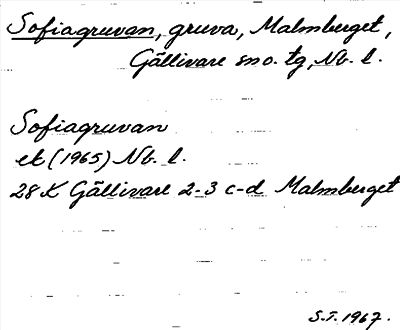 Sofiagruvan, gruva, Malmberget,
Gällivare sn o. tg, Nb. l.
Sofiagruvan
ek (1965) Nb. l.
28 K Gällivare 2-3 c-d Malmberget
S.T. 1967.